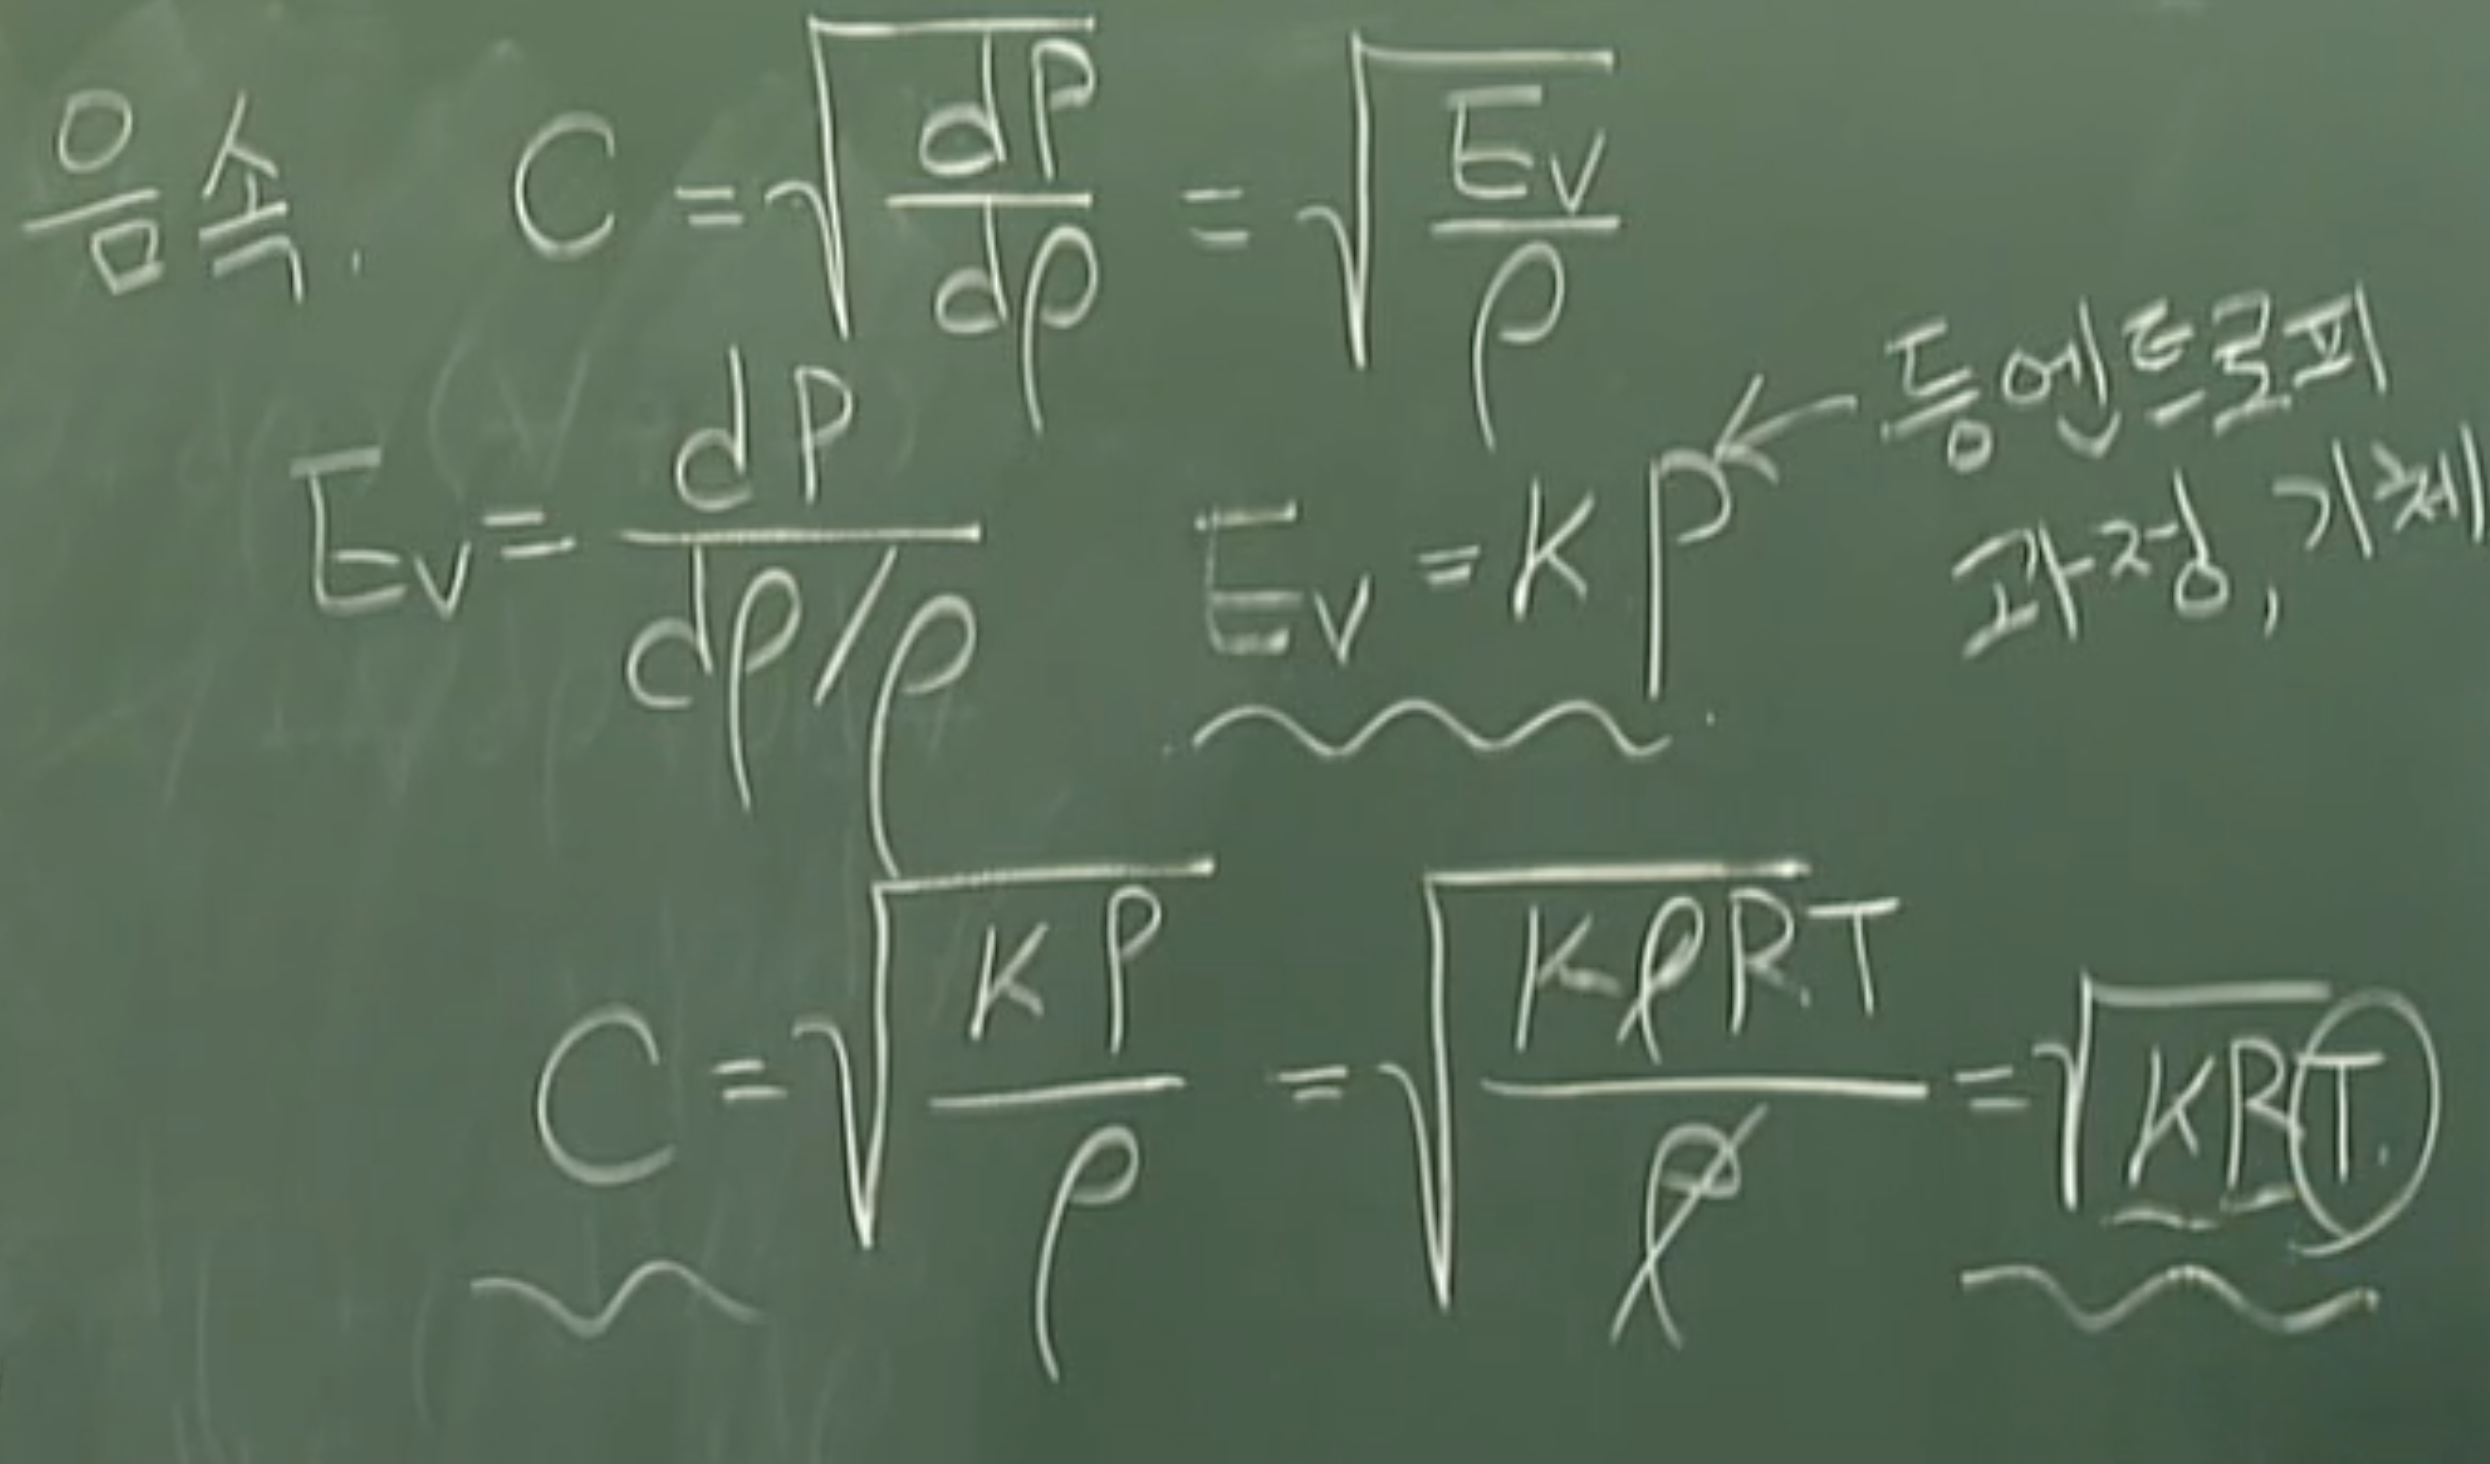 음속. C = √(dP/dρ) = √(Ev/ρ)
Ev = dP/(dρ/ρ) Ev = kP ← 등엔트로피
과정, 기체
C = √(kP/ρ) = √(kρRT/ρ) = √(kRT)